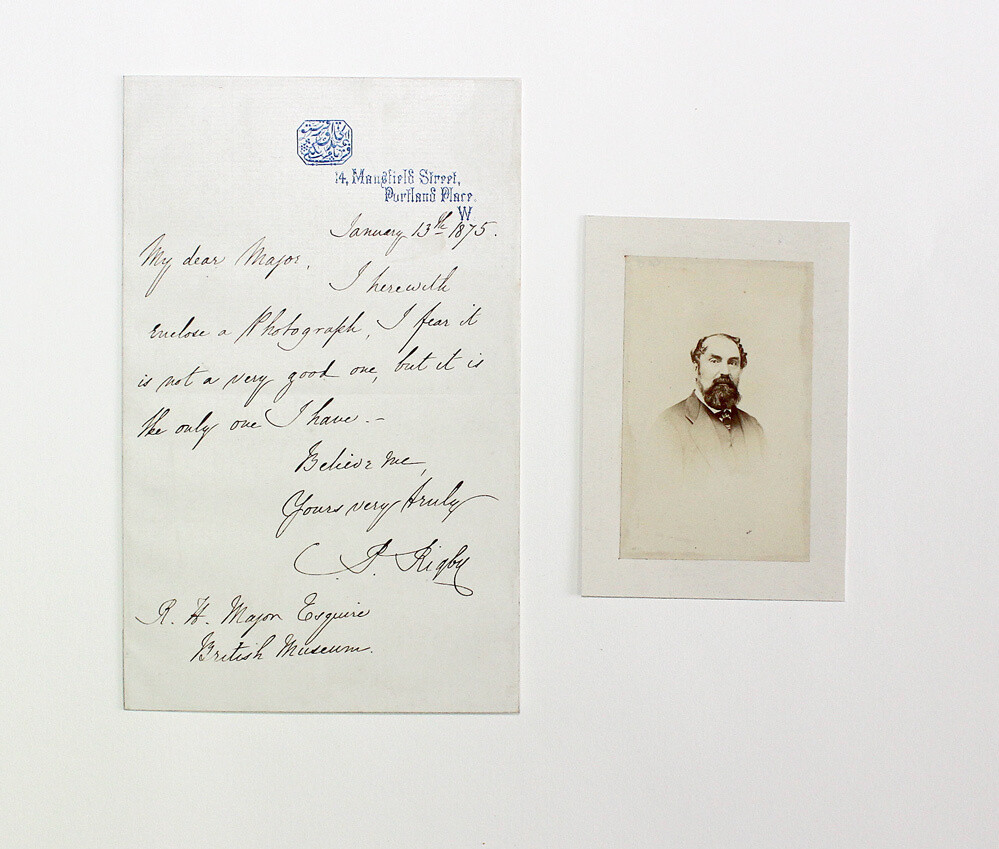 14, Mansfield Street,
Portland Place.
W
January 13th 1875.
My dear Major,
I herewith
enclose a Photograph, I fear it
is not a very good one, but it is
the only one I have. –
Believe me,
Yours very truly
C. P. Rigby
R. H. Major Esquire
British Museum.